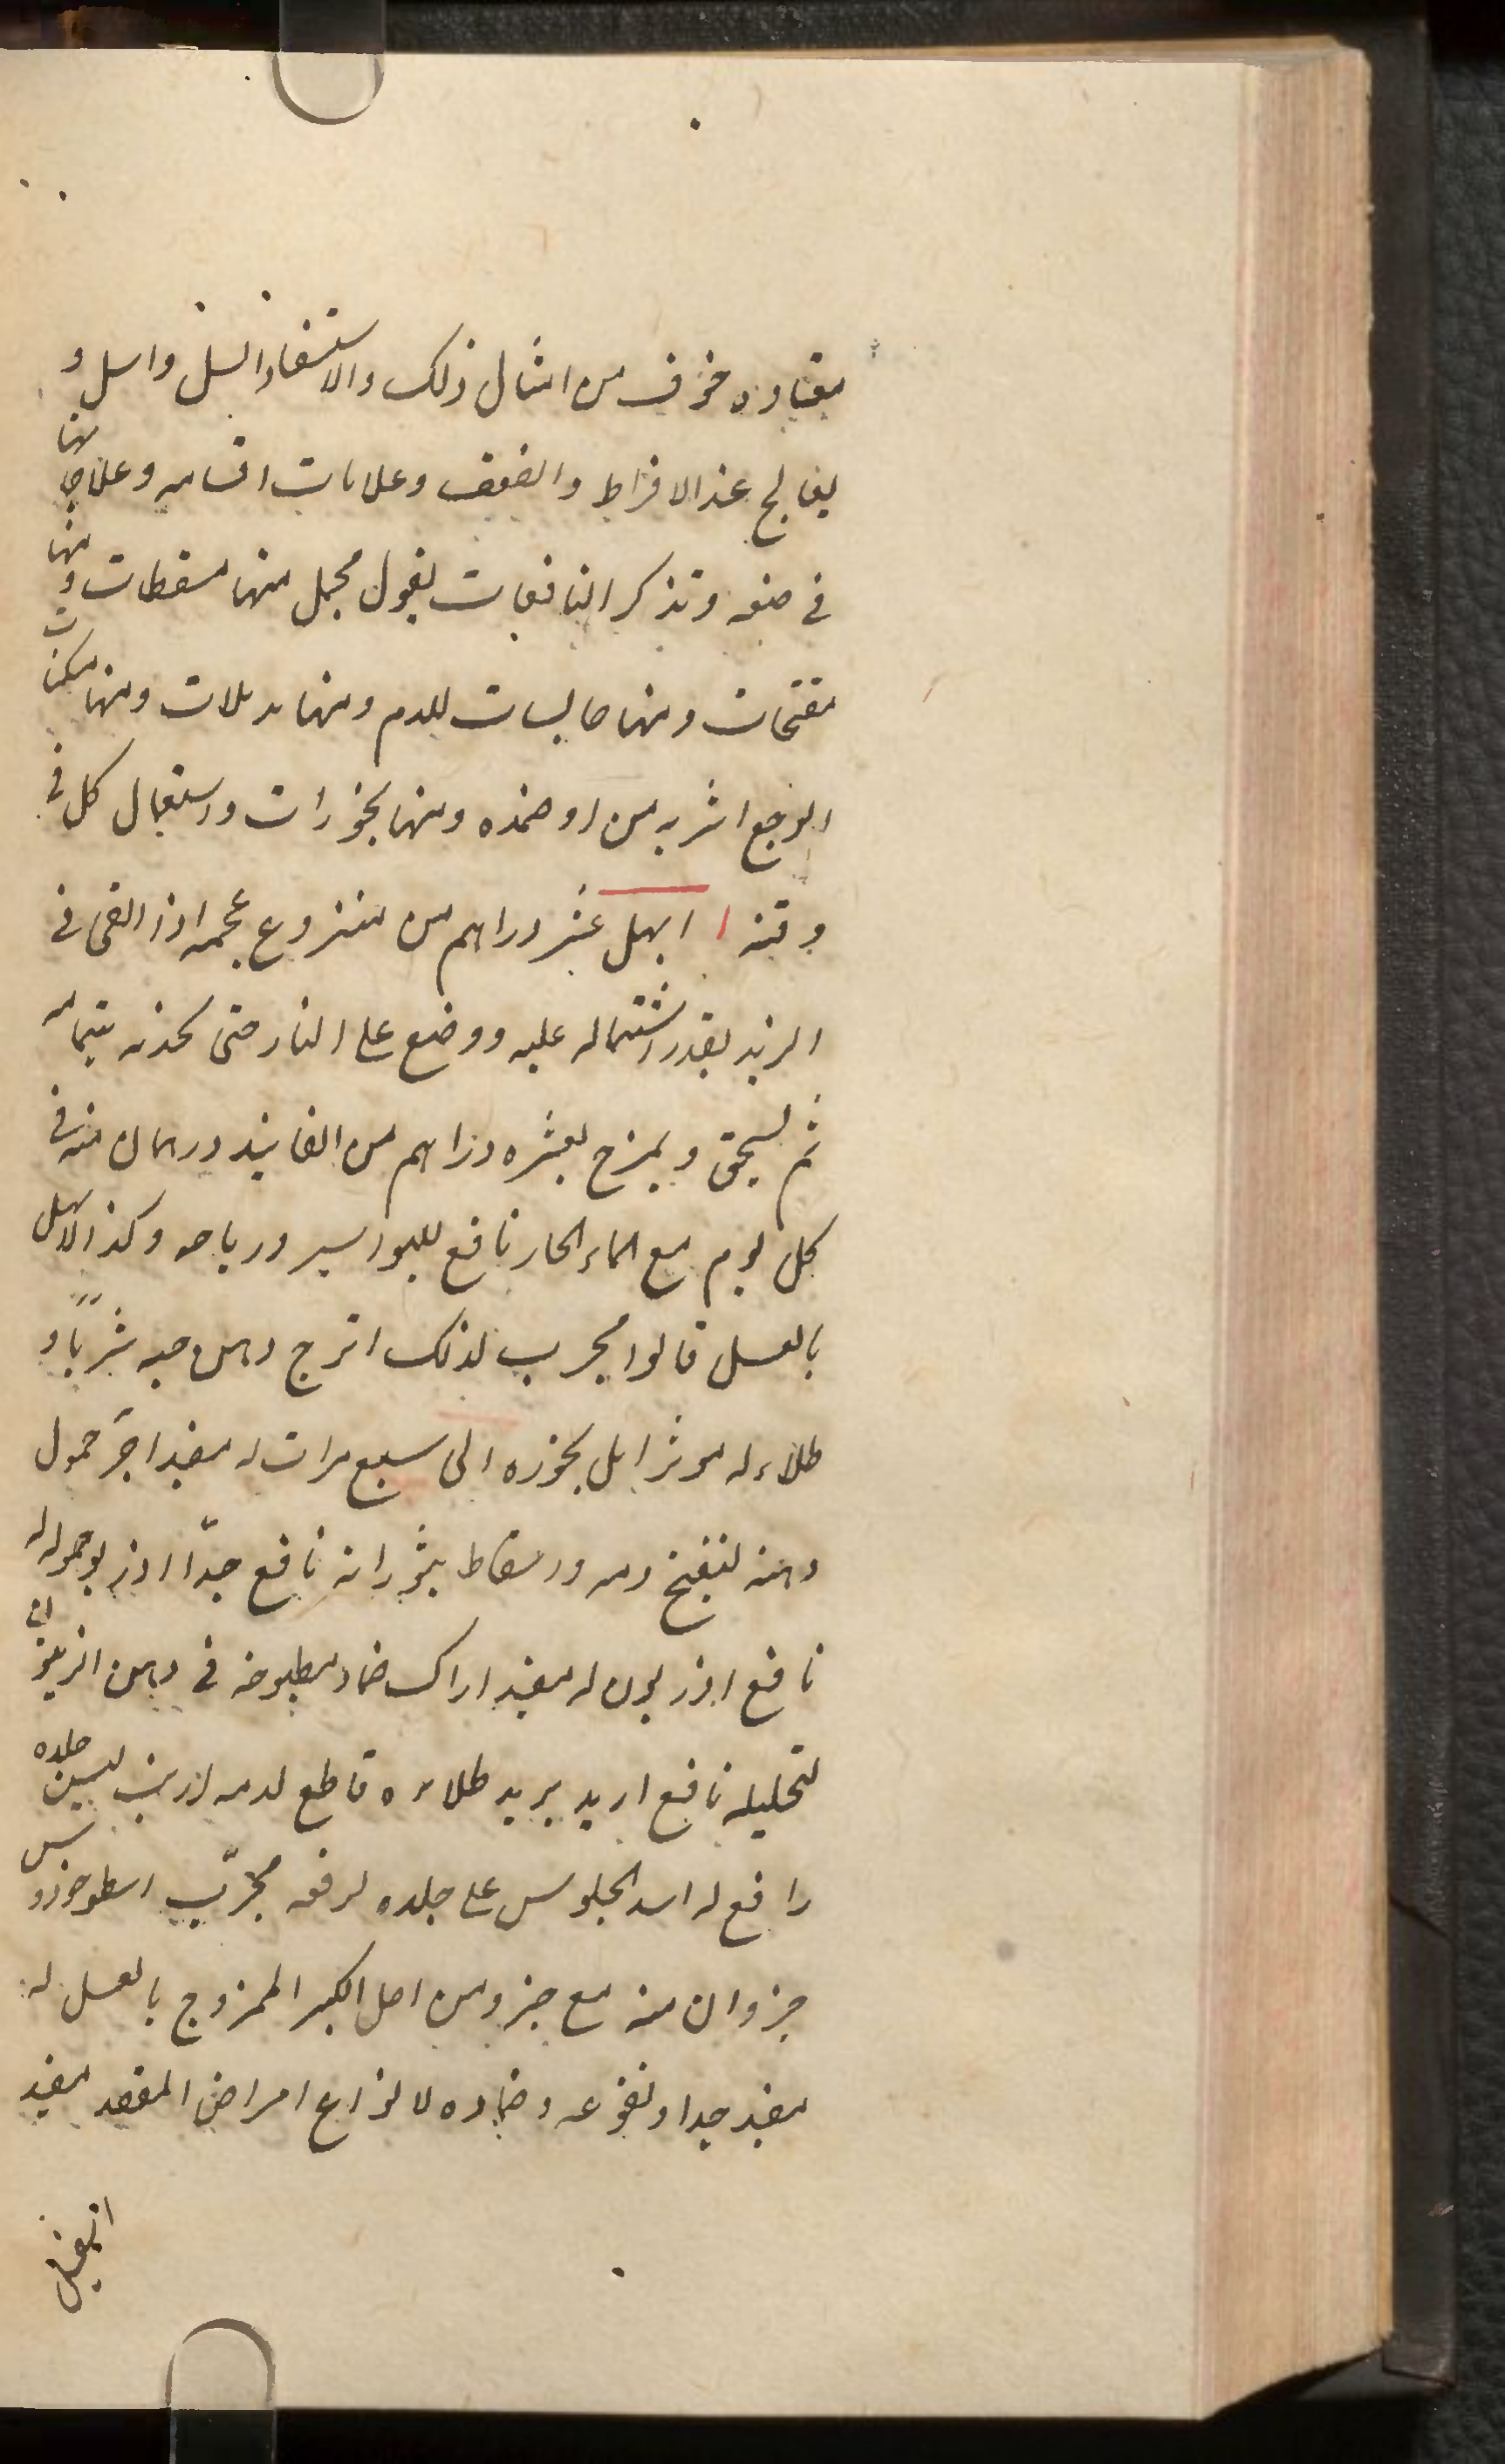 معتاده خوف من امثال ذلك والاستسقاء والسل واسل و
يعالج عند الافراط والضعف وعلامات اقسامه وعلاجها
في صنفه وتذكر النافعات بقول مجمل منها مسقطات ومنها
مفتحات ومنها حابسات للدم ومنها مدملات ومنها مسكنات
الوجع اشربه من اوضمده ومنها بخورات واستعمال كل في
وقته ابهل عشر دراهم من منزوع عجمه اذا القى في
الزبد بقدر اشتماله عليه ووضع على النار حتى بتمامه
ثم يسحق ويمزج بعشره دراهم من الفانيذ درهمان منه في
كل يوم مع الماء الحار نافع للبواسير ورياحه وكذا الابهل
بالعسل قالوا مجرب لذلك اترج دهن حبه شربًا و
طلاء له موثر ابل بخوره الى سبع مرات له مفيد اجر حمول
دهنه لتفتيح دمه واسقاط بثوراته نافع جدّا اذر بو حموله له
نافع اذريون له مفيد اراك ضماد مطبوخه في دهن الزيتون
لتحليله نافع اربد بربد طلاءه قاطع لدمه ارنب جلده
رافع له اسد الجلوس على جلده لرفعه مجرّب اسطوخودوس
جزوان منه مع جزو من اصل الكبر الممزوج بالعسل له
مفيد جدا ونقوعه وضماده لانواع امراض المقعد مفيد